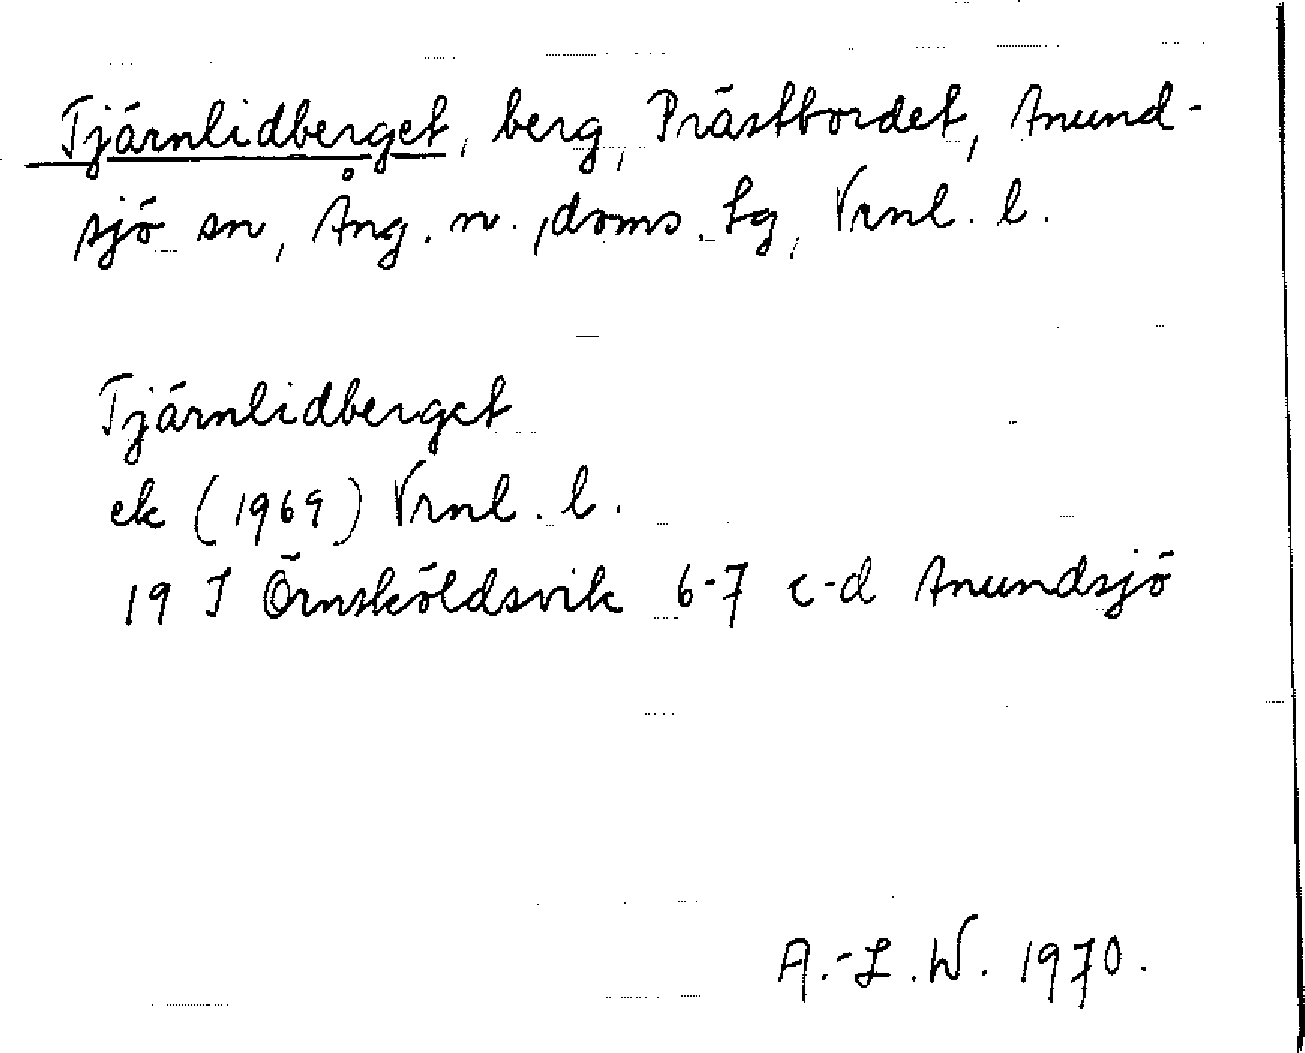 Tjärnlidberget, berg, Prästbordet, Anund-
sjö sn, Ång. n., doms. Lg, Vrnl. l.
Tjärnlidberget
ek (1969) Vrnl. l.
19 I Örnsköldsvik 6-7 c-d Anundsjö
A.-L.W. 1970.